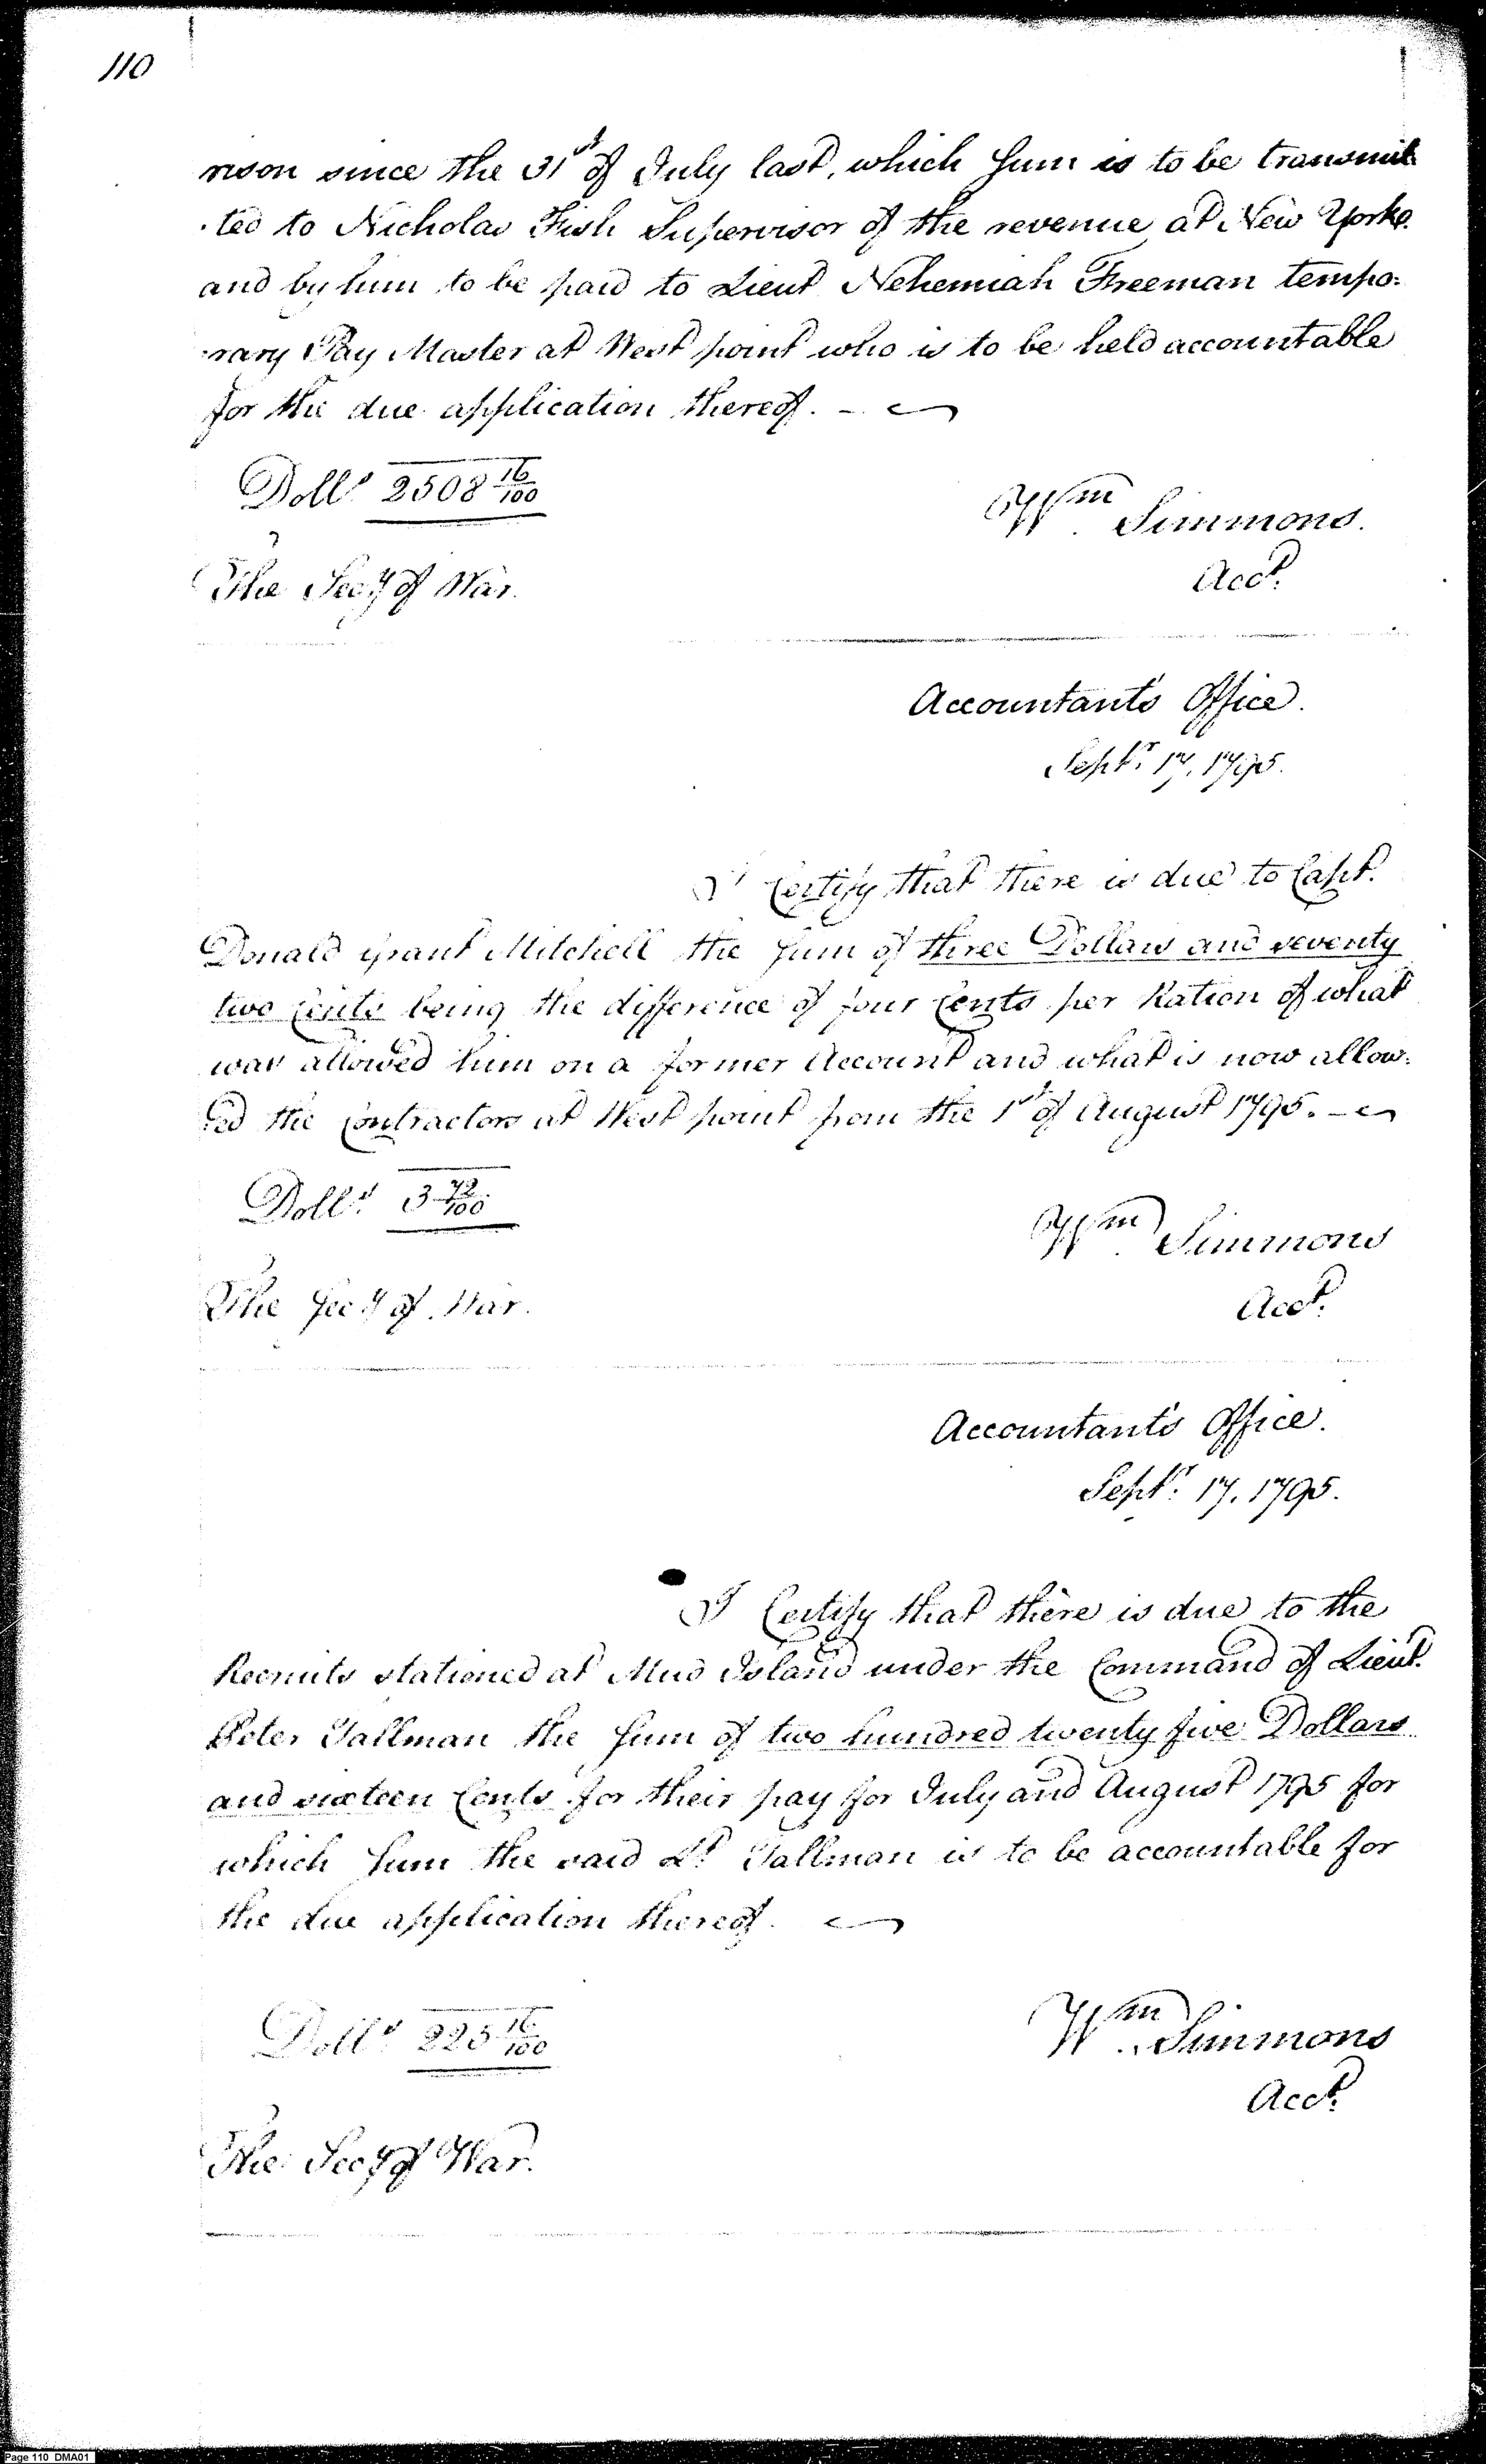 110
rison since the 31st of July last, which Sum is to be transmit
ted to Nicholas Fish Supervisor of the revenue at New York
and by him to be paid to Lieut Nehemiah Freeman tempo:
rary Pay Master at West point who is to be held accountable
for the due application thereof. —
Dolls 2508 16/100
Wm Simmons.
Acct.
The Secy of War.
Accountant's Office.
Septr 17, 1795.
I Certify that there is due to Capt.
Donald Grant Mitchell the Sum of three Dollars and seventy
two Cents being the difference of four Cents per Ration of what
was allowed him on a former Account and what is now allow:
ed the Contractors at West point from the 1st of August 1795. —
Dolls 3 72/100
Wm Simmons
Acct.
The Secy of War.
Accountant's Office.
Septr 17, 1795.
I Certify that there is due to the
Recruits stationed at Mud Island under the Command of Lieut.
Peter Tallman the Sum of two hundred twenty five Dollars
and sixteen Cents for their pay for July and August 1795 for
which Sum the said Lt Tallman is to be accountable for
the due application thereof.
Dolls 225 16/100
Wm Simmons
Acct.
The Secy of War.
Page 110 DMA01